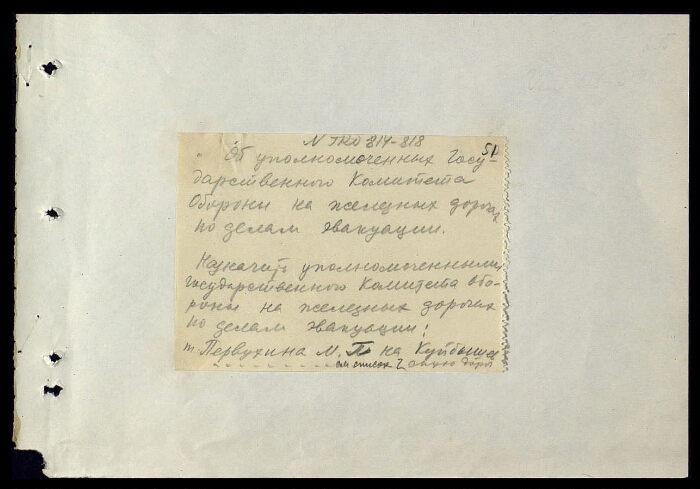 N ГКО 817-818
51
Об уполномоченных Госу-
дарственного Комитета
Обороны на железных дорогах
по делам эвакуации.
Назначить уполномоченными
государственного Комитета обо-
роны на железных дорогах
по делам эвакуации:
т. Первухина М. Г. на Куйбышев
см список скую доро